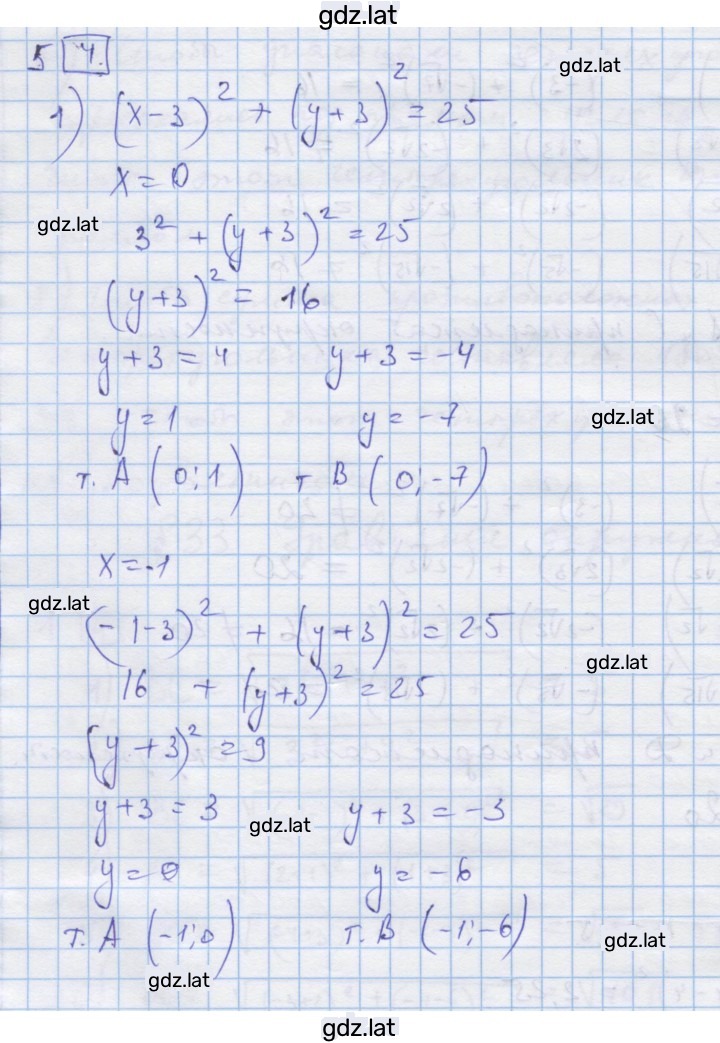 gdz.lat
5 4.
gdz.lat
1) (x-3)² + (y+3)² = 25
x = 0
gdz.lat
3² + (y+3)² = 25
(y+3)² = 16
y+3 = 4 y+3 = -4
y = 1 y = -7
gdz.lat
т. A (0; 1) т B (0; -7)
x = -1
gdz.lat
(-1-3)² + (y+3)² = 25
gdz.lat
16 + (y+3)² = 25
(y+3)² = 9
y+3 = 3 y+3 = -3
gdz.lat
y = 0 y = -6
т. A (-1; 0) т. B (-1; -6)
gdz.lat
gdz.lat
gdz.lat